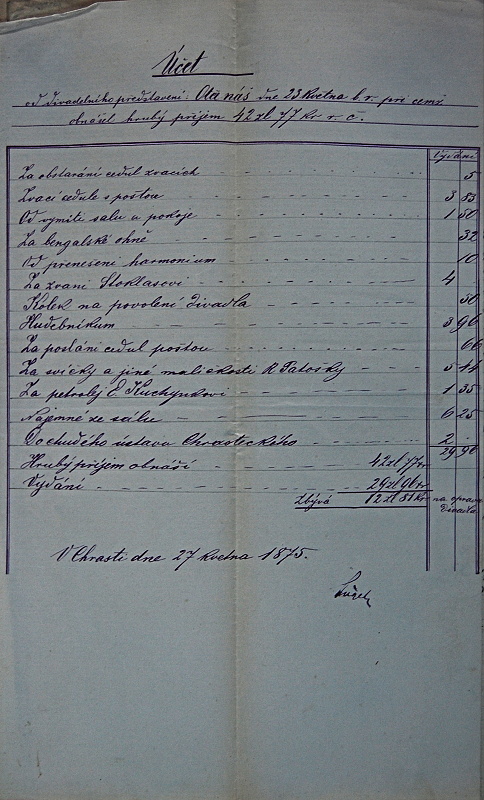 Účet
od divadelního představení: Ota náš dne 23 Května b. r. při čemž
obnášel hrubý příjem 42 zl 77 kr. r. č.
Vydání
Za obstarání cedul zvacích 5
Zvací cedule s poštou 3 83
Od vymití salu a pokoje 1 50
Za bengalské ohně 32
Od přenešení harmonium 10
Za zvaní Stoklasovi 4
Kolek na povolení divadla 50
Hudebníkum 3 96
Za poslání cedul poštou 66
Za svíčky a jiné maličkosti R Patočky 5 14
Za petrolej E Kuchynkovi 1 35
Nájemné ze sálu 6 25
Do chudého ústavu Chrasteckého 2 -
29 96
Hrubý příjem obnáší 42 zl 77 kr
Vydání 29 zl 96 kr
zbývá 12 zl 81 kr na opravu
divadla
V Chrasti dne 27 května 1875.